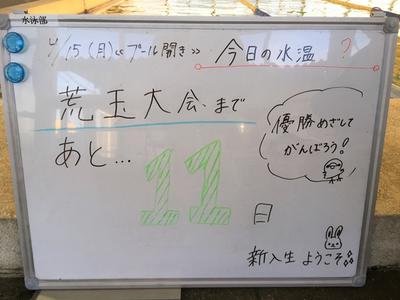 水泳部
4/15(月)≪プール開き≫ 今日の水温 ?
荒玉大会まで
あと...
11日
優勝めざして
がんばろう!
新入生 ようこそ